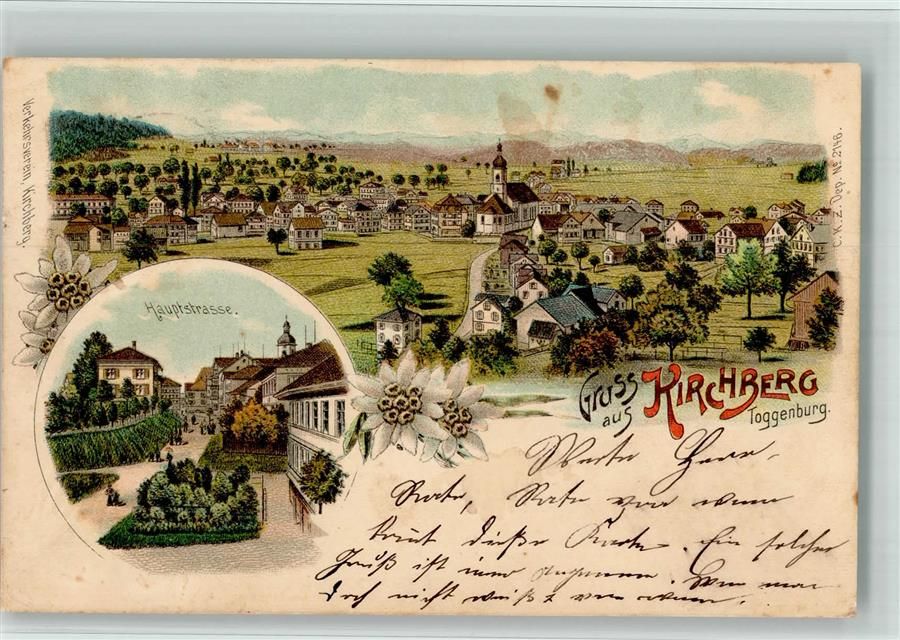 Verkehrsverein, Kirchberg.
C.K.Z. Dep. No. 2146.
Hauptstrasse.
Gruss
aus KIRCHBERG
Toggenburg.
Werte Herr
Rate, Rate von wem
kömt dieße Karte. Ein solcher
Gruß ist immer angenem. Wen man
doch nicht weißt von wem.